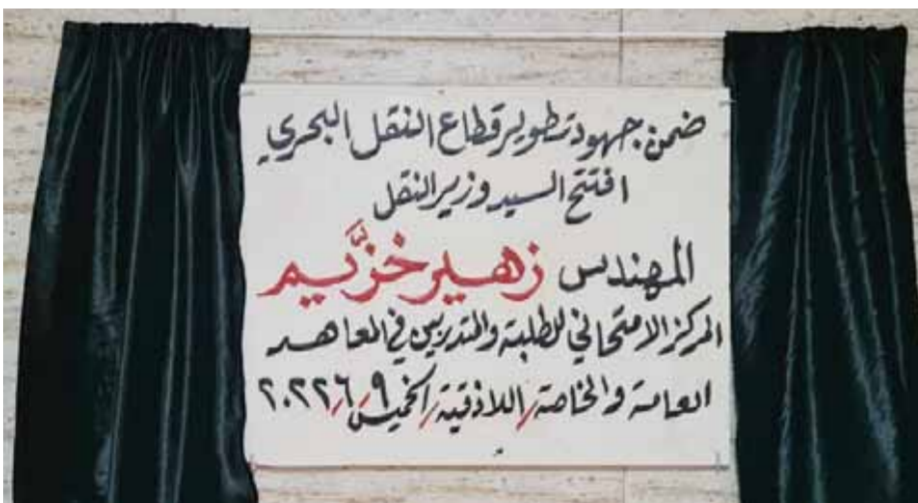 ضمن جهود تطوير قطاع النقل البحري
افتتح السيد وزير النقل
المهندس زهير خزَّيم
المركز الامتحاني للطلبة والمتدربين في المعاهد
العامة والخاصة/ اللاذقية/ الخميس ٩/٦/٢٠٢٢